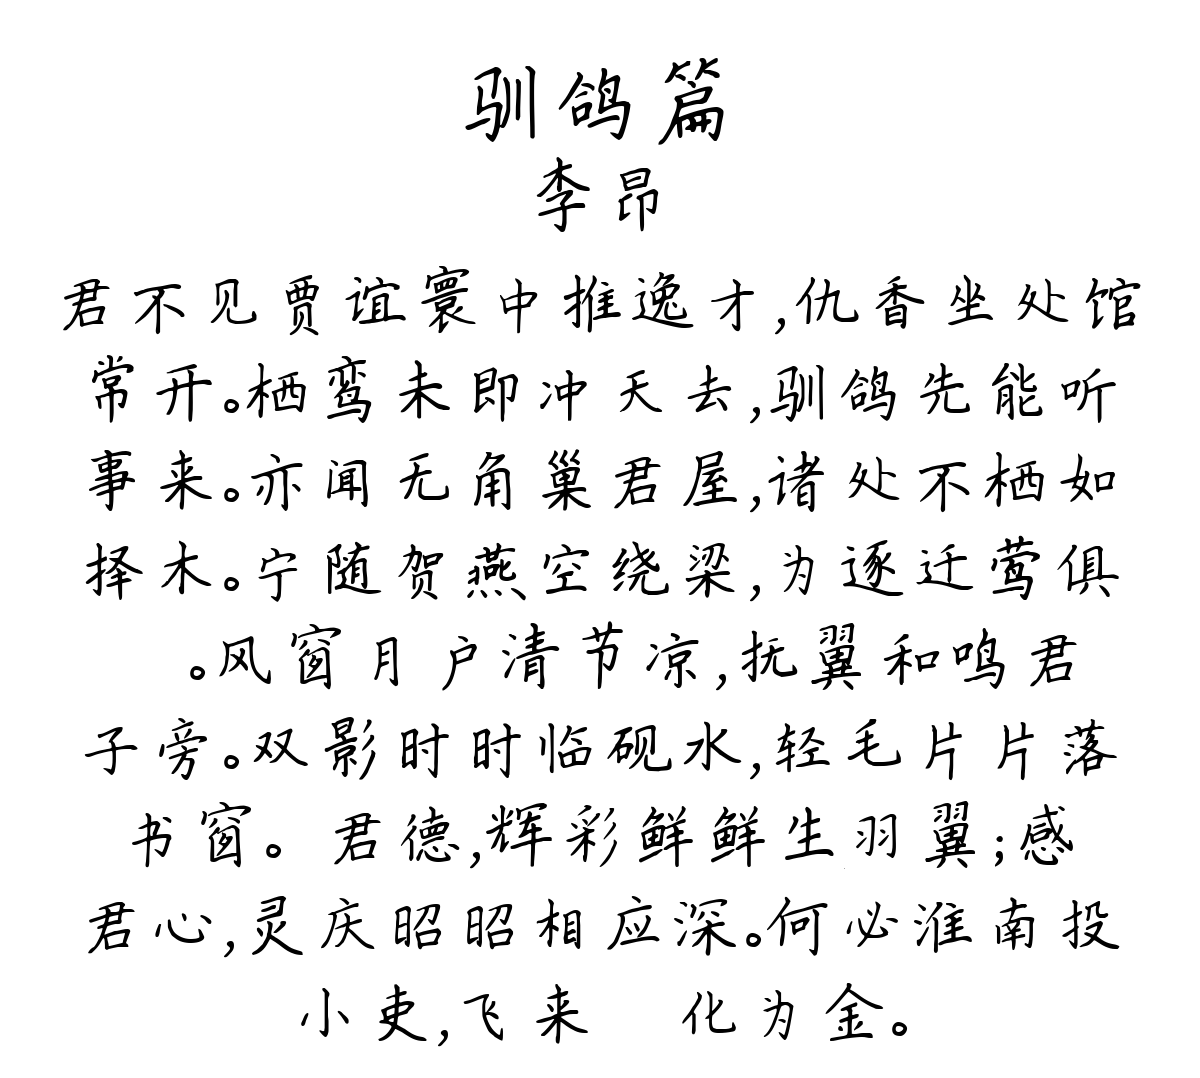 驯鸽篇
李昂
君不见贾谊寰中推逸才,仇香坐处馆
常开。栖鸾未即冲天去,驯鸽先能听
事来。亦闻无角巢君屋,诸处不栖如
择木。宁随贺燕空绕梁,为逐迁莺俱
。风窗月户清节凉,抚翼和鸣君
子旁。双影时时临砚水,轻毛片片落
书窗。 君德,辉彩鲜鲜生羽翼;感
君心,灵庆昭昭相应深。何必淮南投
小吏,飞来 化为金。